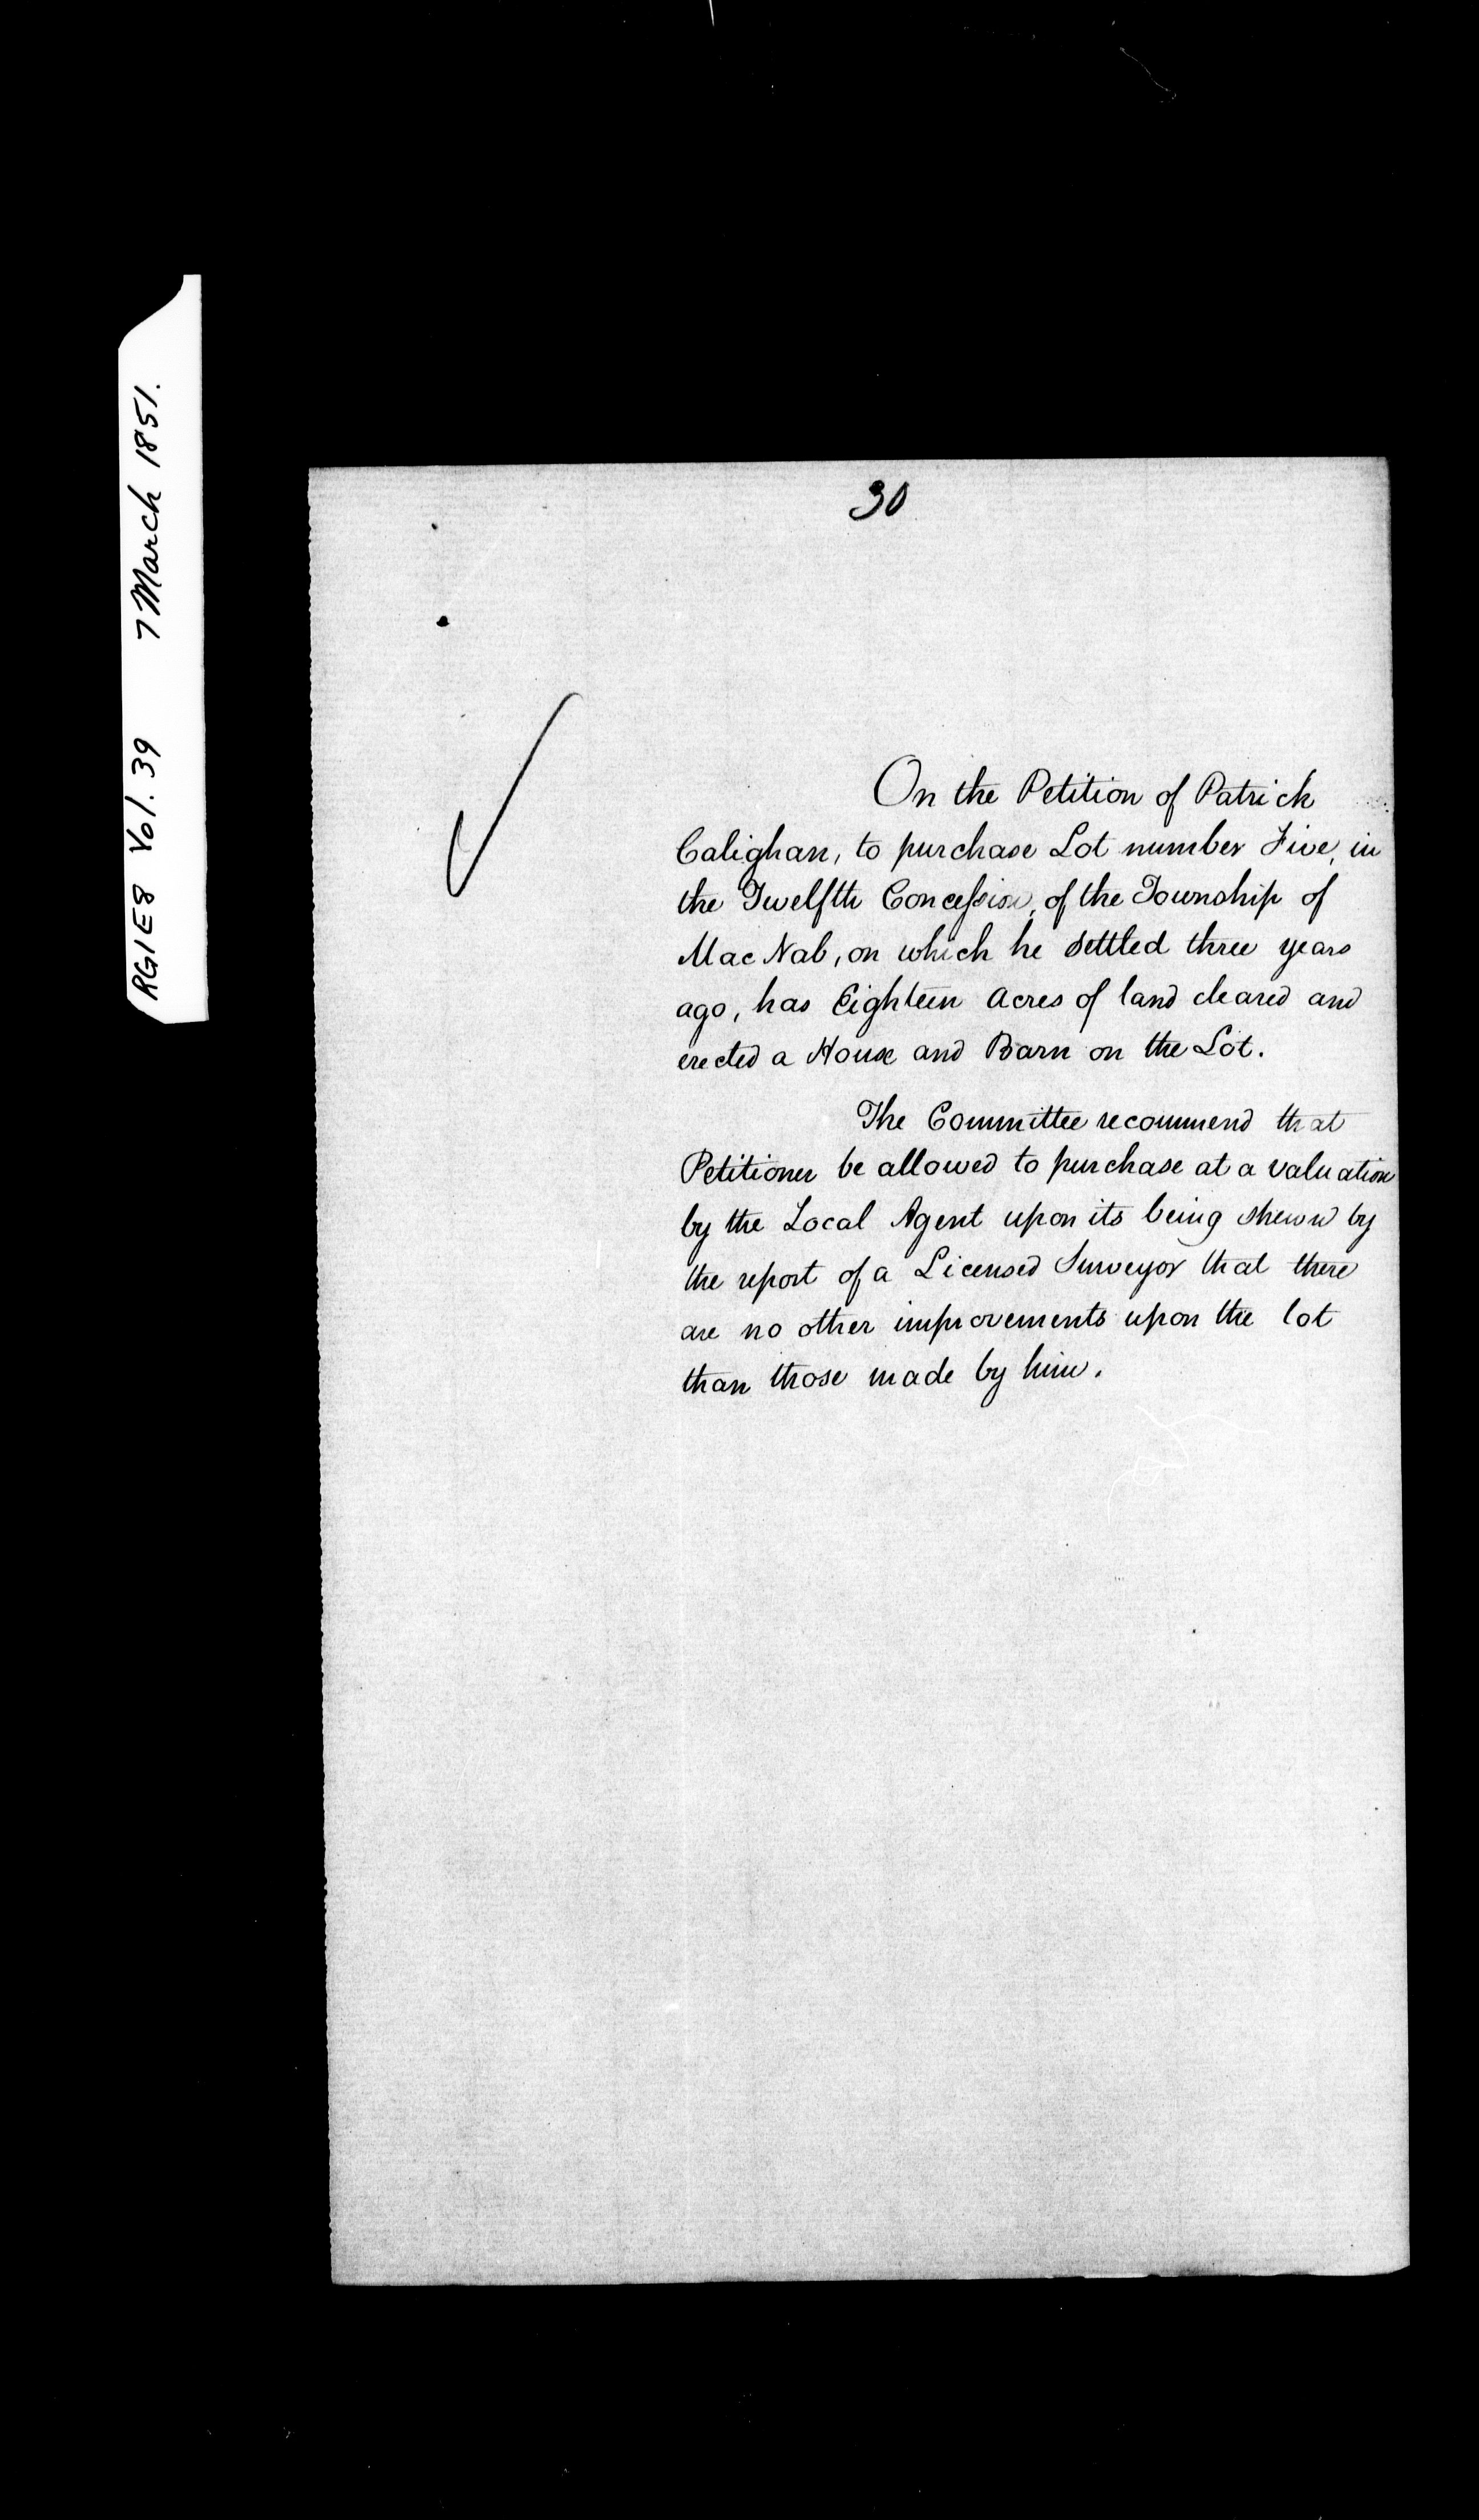 RG1E8 Vol. 39 7 March 1851.
30
On the Petition of Patrick
Calighan, to purchase Lot number Five, in
the Twelfth Concession, of the Township of
Mac Nab, on which he settled three years
ago, has Eighteen Acres of land cleared and
erected a House and Barn on the Lot.
The Committee recommend that
Petitioner be allowed to purchase at a valuation
by the Local Agent upon its being shewn by
the report of a Licensed Surveyor that there
are no other improvements upon the lot
than those made by him.